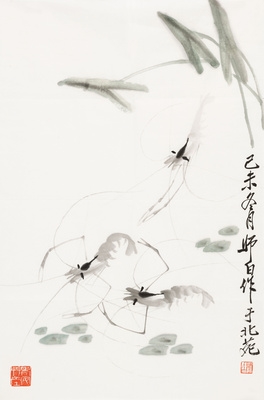 己未冬月师白作于北苑